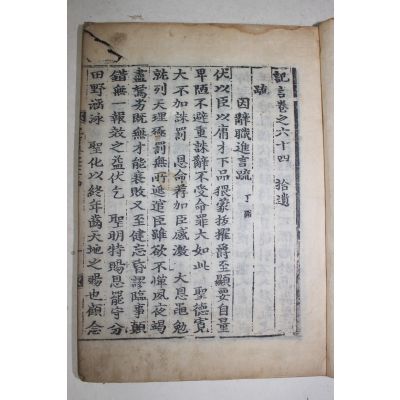 記言卷之六十四 拾遺
疏
因辭職進言疏 丁
伏以臣以庸才下品猥蒙拔擢爵至顯要自量
卑陋不避重誅辭不受命罪大如此 聖德寬
大不加誅罰 恩命荐加臣感激 大恩黽勉
就列天理極罰無所逃逭臣雖欲不憚夙夜竭
盡駑劣旣無才能衰敗又至健忘昏謬臨事顚
錯無一報效之益伏乞 聖明特賜恩罷守分
田野涵泳 聖化以終年齒天地之賜也顧念